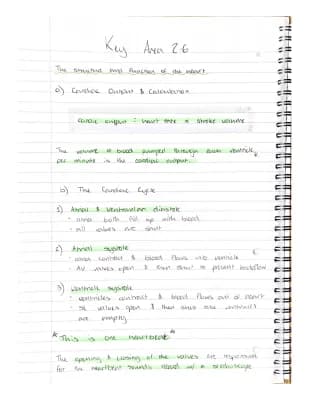 Key Area 2.6
The structure and function of the heart.
a) Cardiac Output & Calculation
cardiac output = heart rate x stroke volume
The volume of blood pumped through each ventricle
per minute is the cardiac output.
b) The Cardiac Cycle
1) Atrial & Ventricular diastole
- atria both fill up with blood
- all valves are shut
2) Atrial systole
- atria contract & blood flows into ventricle
- AV valves open & then shut to prevent backflow
3) Ventricle systole
- ventricles contract & blood flows out of heart
- SL valves open & then shut once ventricles
are empty
* This is one heartbeat *
The opening & closing of the valves are responsible
for the heartbeat sounds heard w/ a stethoscope